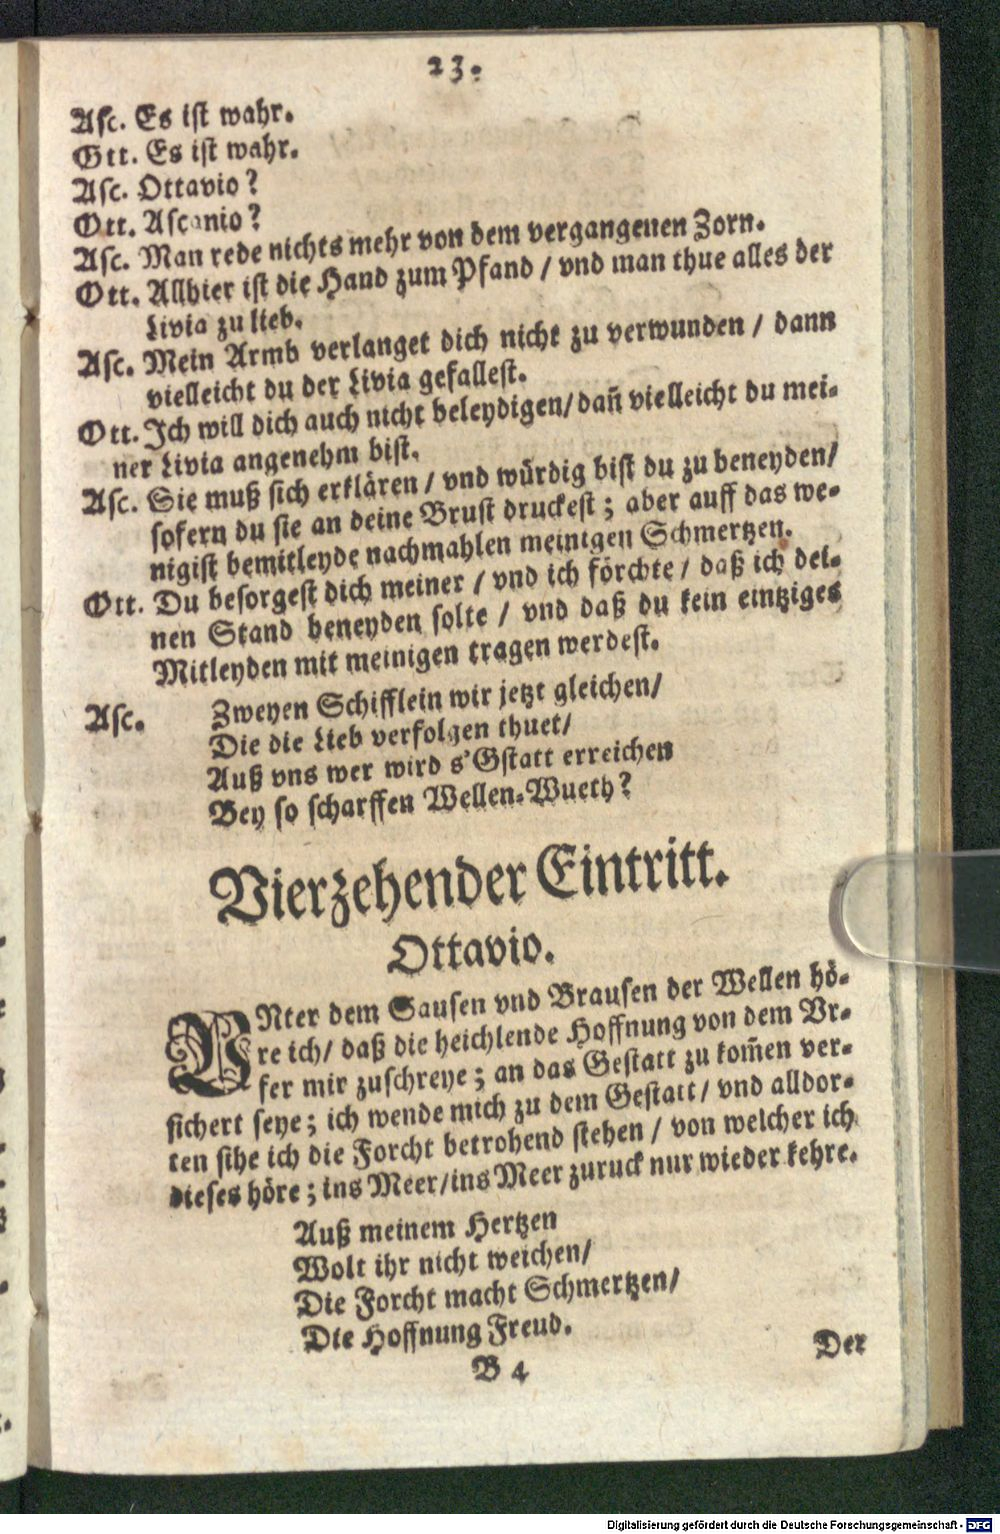 23.
Asc. Es ist wahr.
Ott. Es ist wahr.
Asc. Ottavio?
Ott. Ascanio?
Asc. Man rede nichts mehr von dem vergangenen Zorn.
Ott. Allhier ist die Hand zum Pfand / vnd man thue alles der
Livia zu lieb.
Asc. Mein Armb verlanget dich nicht zu verwunden / dann
vielleicht du der Livia gefallest.
Ott. Ich will dich auch nicht beleydigen / dañ vielleicht du mei-
ner Livia angenehm bist.
Asc. Sie muß sich erklären / vnd würdig bist du zu beneyden /
sofern du sie an deine Brust druckest; aber auff das we-
nigist bemitleyde nachmahlen meinigen Schmertzen.
Ott. Du besorgest dich meiner / vnd ich förchte / daß ich dei-
nen Stand beneyden solte / vnd daß du kein eintziges
Mitleyden mit meinigen tragen werdest.
Asc. Zweyen Schifflein wir jetzt gleichen /
Die die Lieb verfolgen thuet /
Auß vns wer wird s'Gstatt erreichen
Bey so scharffen Wellen-Wueth?
Vierzehender Eintritt.
Ottavio.
VNter dem Sausen vnd Brausen der Wellen hö-
re ich / daß die heichlende Hoffnung von dem Vr-
fer mir zuschreye; an das Gestatt zu kom̃en ver-
sichert seye; ich wende mich zu dem Gestatt / vnd alldor-
ten sihe ich die Forcht betrohend stehen / von welcher ich
dieses höre; ins Meer / ins Meer zuruck nur wieder kehre.
Auß meinem Hertzen
Wolt ihr nicht weichen /
Die Forcht macht Schmertzen /
Die Hoffnung Freud.
B 4
Der
Digitalisierung gefördert durch die Deutsche Forschungsgemeinschaft - DFG